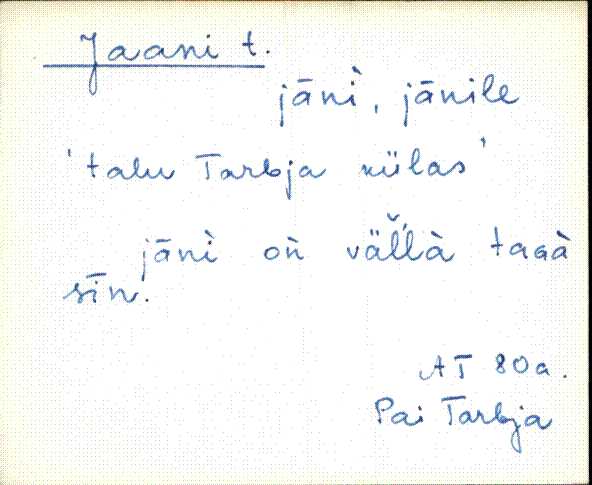 Jaani t.
jānì, jānile
'talu Tarbja külas'
jānì oǹ väĺĺà tagà
sīn.
AT 80a.
Pai Tarbja